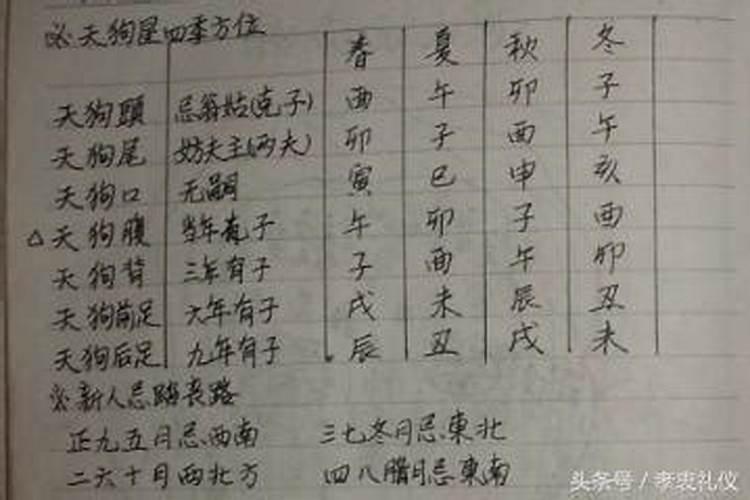 必天狗星四季方位
春 夏 秋 冬
天狗頭 忌翁姑(克子) 酉 午 卯 子
天狗尾 妨夫主(两夫) 卯 子 酉 午
天狗口 无嗣 寅 巳 申 亥
△天狗腹 当年有子 午 卯 子 酉
天狗背 三年有子 子 酉 午 卯
天狗前足 六年有子 戌 未 辰 丑
天狗后足 九年有子 辰 丑 戌 未
必新人忌踏丧路
正九五月忌西南 三七冬月忌東北
二六十月西北方 四八腊月忌東南
头条号／李衷礼仪